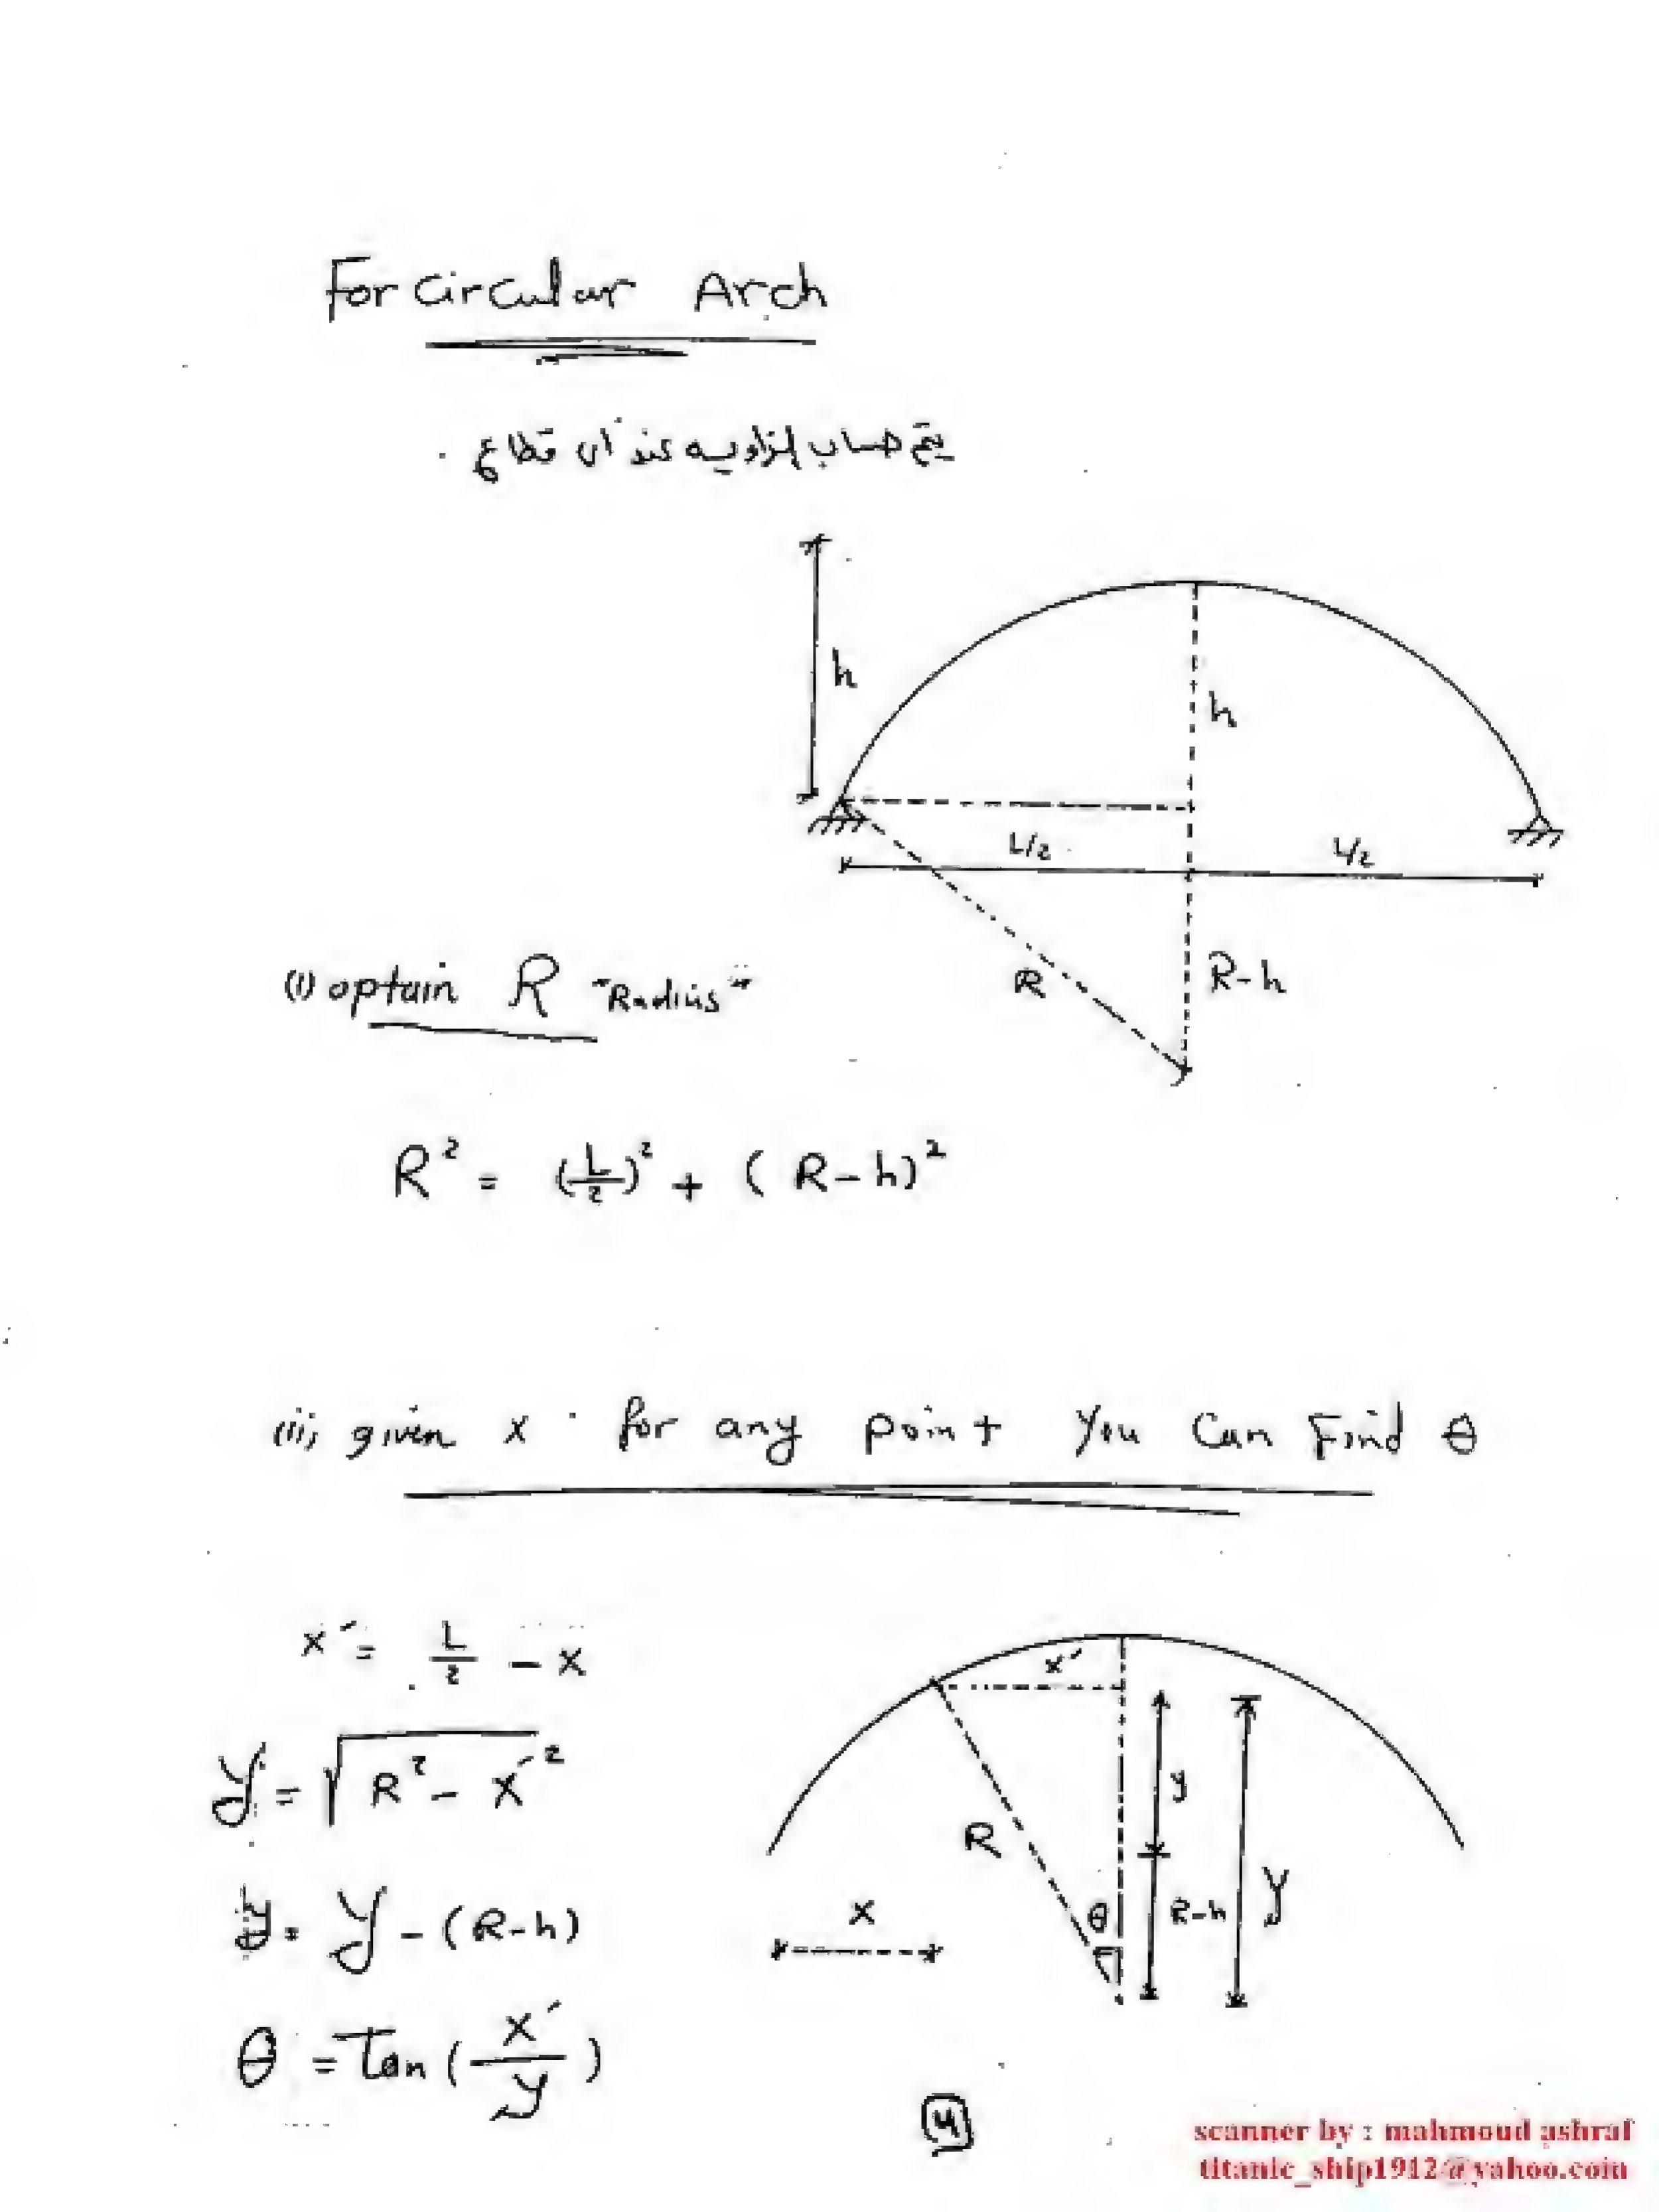 For Circular Arch
يتم حساب الزاويه عند أى قطاع .
h
h
L/2
L/2
R
R-h
(i) optain R "Radius"
R² = (L/2)² + (R-h)²
(ii) given x for any point You Can Find θ
x' = L/2 - x
Y = √(R² - x'²)
y = Y - (R-h)
θ = Tan (x'/Y)
x'
y
R
θ
R-h
Y
x
4
scanner by : mahmoud ashraf
titanic_ship1912@yahoo.com